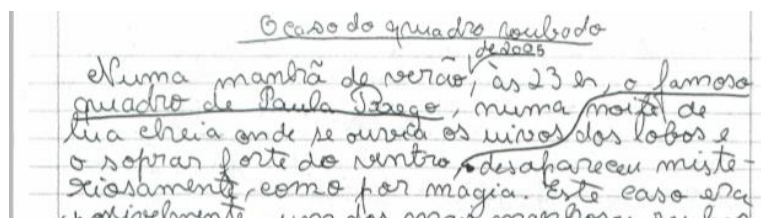 O caso do quadro roubado
de 2025
Numa manhã de verão, às 23 h, o famoso
quadro de Paula Raego, numa noite de
lua cheia onde se ouvia os uivos dos lobos e
o soprar forte do ventro, desapareceu miste-
riosamente, como por magia. Este caso era
possivelmente um dos mais